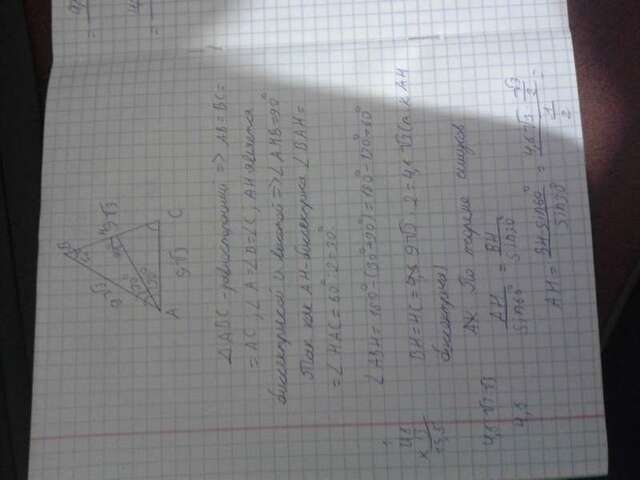 B
60°
9√3
4,5√3
90°
H
30°
30°
A
9√3
C
△ABC - равносторонний => AB = BC =
= AC, ∠A = ∠B = ∠C, AH является
биссектрисой и высотой => ∠AHB = 90°
Так как AH - биссектриса ∠BAH =
= ∠HAC = 60° : 2 = 30°
∠ABH = 180° - (30° + 90°) = 180° - 120° = 60°
BH = HC = 9√3 : 2 = 4,5√3 (т.к AH
биссектриса)
AH По теореме синусов
AH / sin60° = BH / sin30°
AH = BH · sin60° / sin30° = 4,5√3 · √3/2 / 1/2 =
4,5
× 3
13,5
4,5 · √3 · √3
4,5